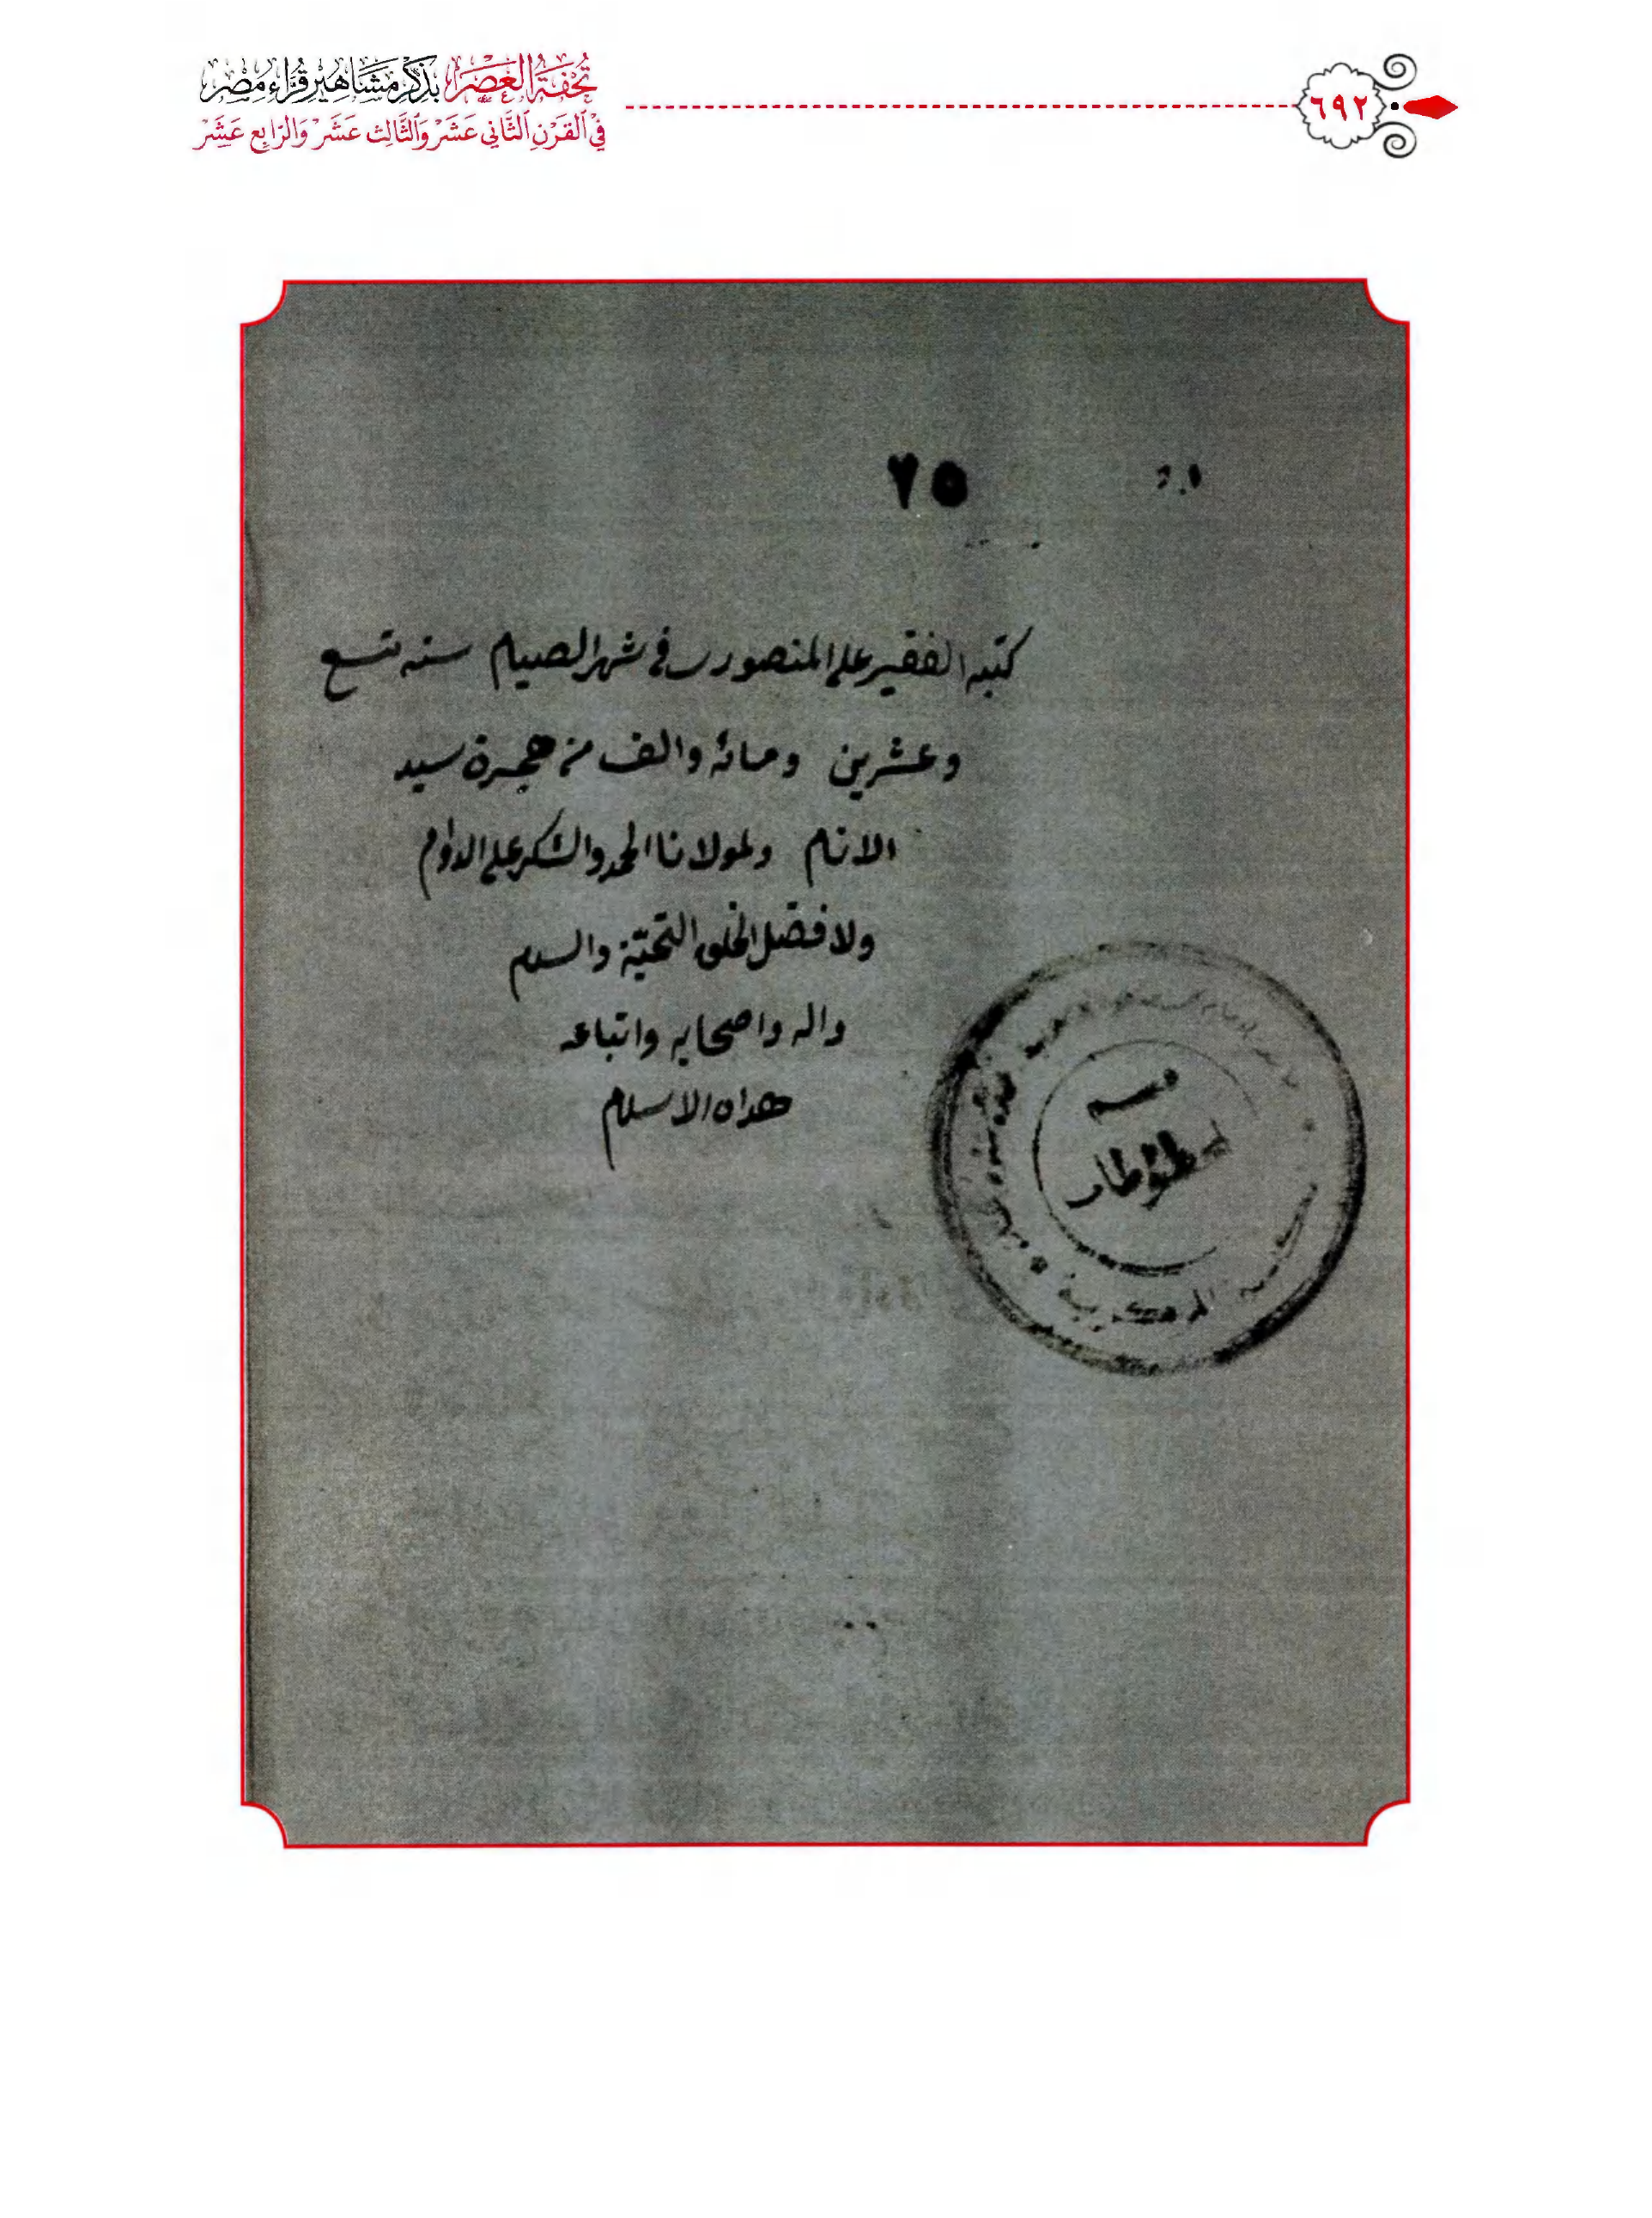 تُحْفَةُ الْعَصْرِ بِذِكْرِ مَشَاهِيرِ قُرَّاءِ مِصْرَ
فِي الْقَرْنِ الثَّانِي عَشَرَ وَالثَّالِثَ عَشَرَ وَالرَّابِعَ عَشَرَ
٦٩٢
٦٥
كتبه الفقير على المنصورى فى شهر الصيام سنه تسع
وعشرين ومائه والف من هجرة سيد
الانام ولمولانا الحمد والشكر على الدوام
ولافضل الخلق التحيّة والسلام
واله واصحابه واتباعه
هداه الاسلام
قسم
المركزية